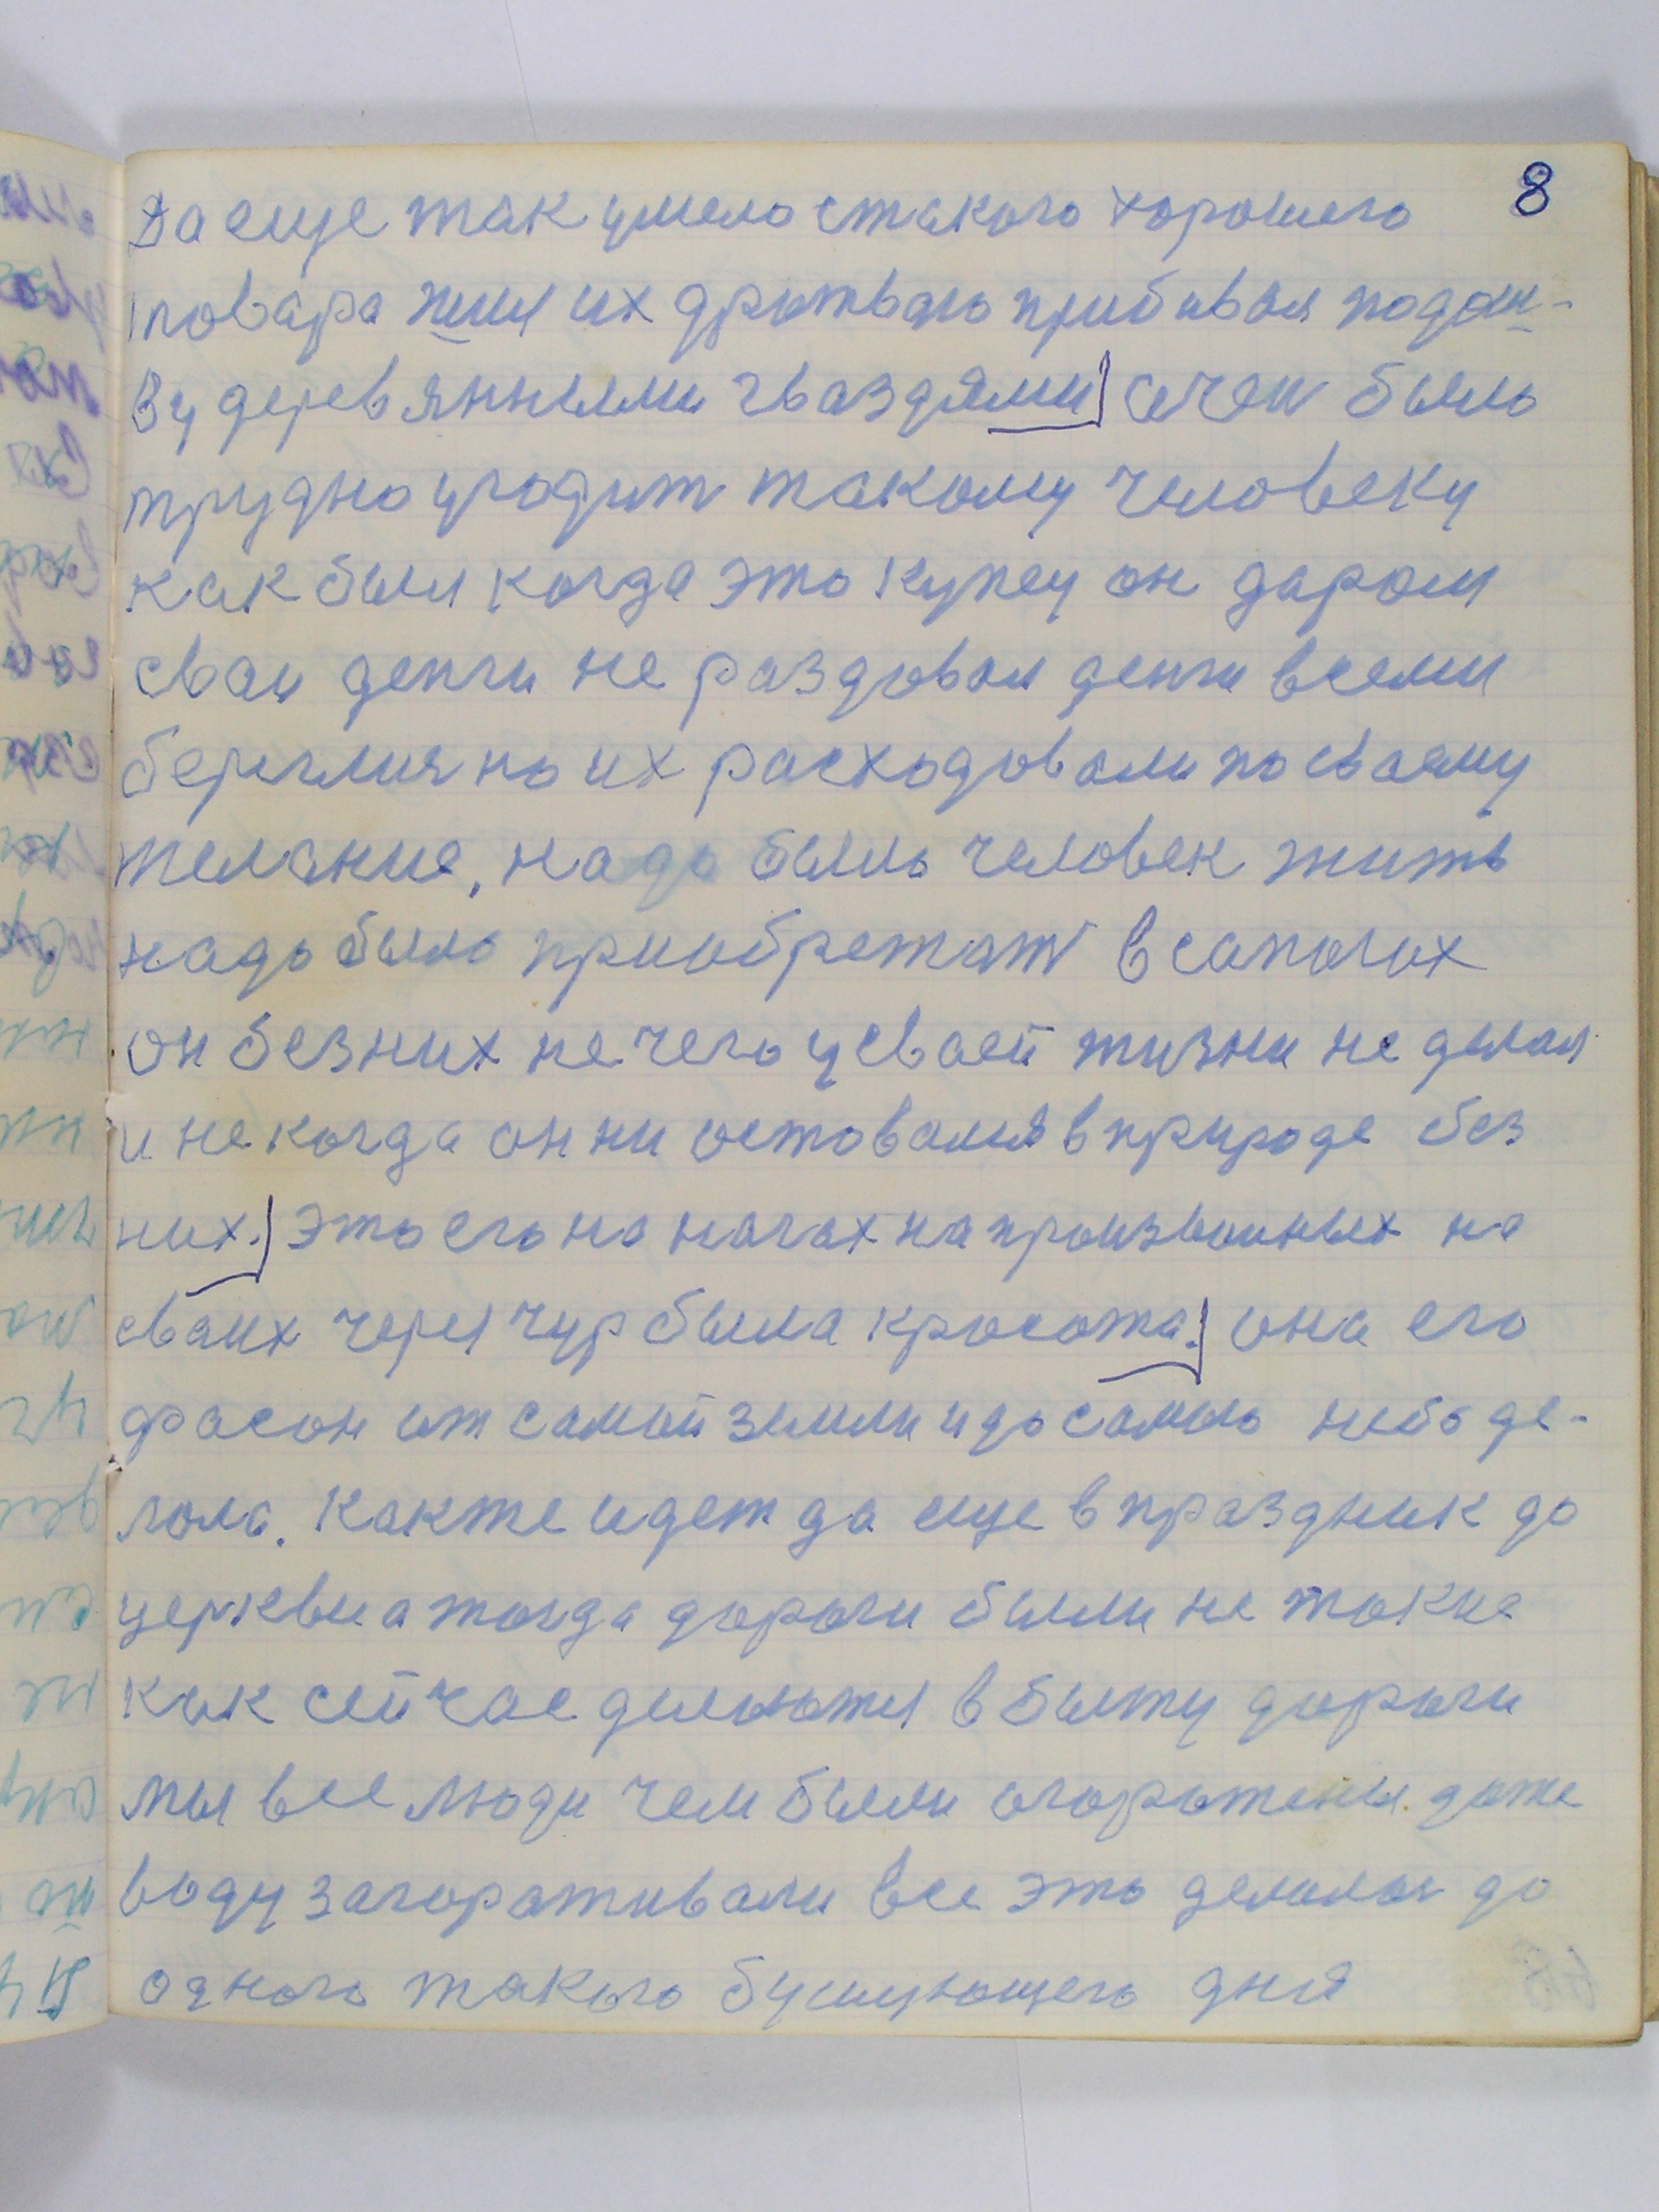 8
Да еще так умело стакого хорошего
товара шил их дратвою прибивал подош-
ву деревянными гваздями очен было
трудно угодит такому человеку
как был когда это купец он даром
сваи денги не раздовал денги всеми
береглися но их расходовали по сваему
желание, надо было человек жить
надо было приобретат в сапогах
он без них не чего у сваей жизни не делал
и не когда он ни оставался в природе без
них. это его на ногах на произвольных на
сваих черезчур была красота. она его
фасон от самой земли и до самого небо де-
лала. Какже идет да еще в праздник до
церкви а тогда дороги были не такие
как сейчас делаются в быту дороги
мы все люди чем были огорожены даже
воду загораживали все это делалос до
одного такого бушующего дня